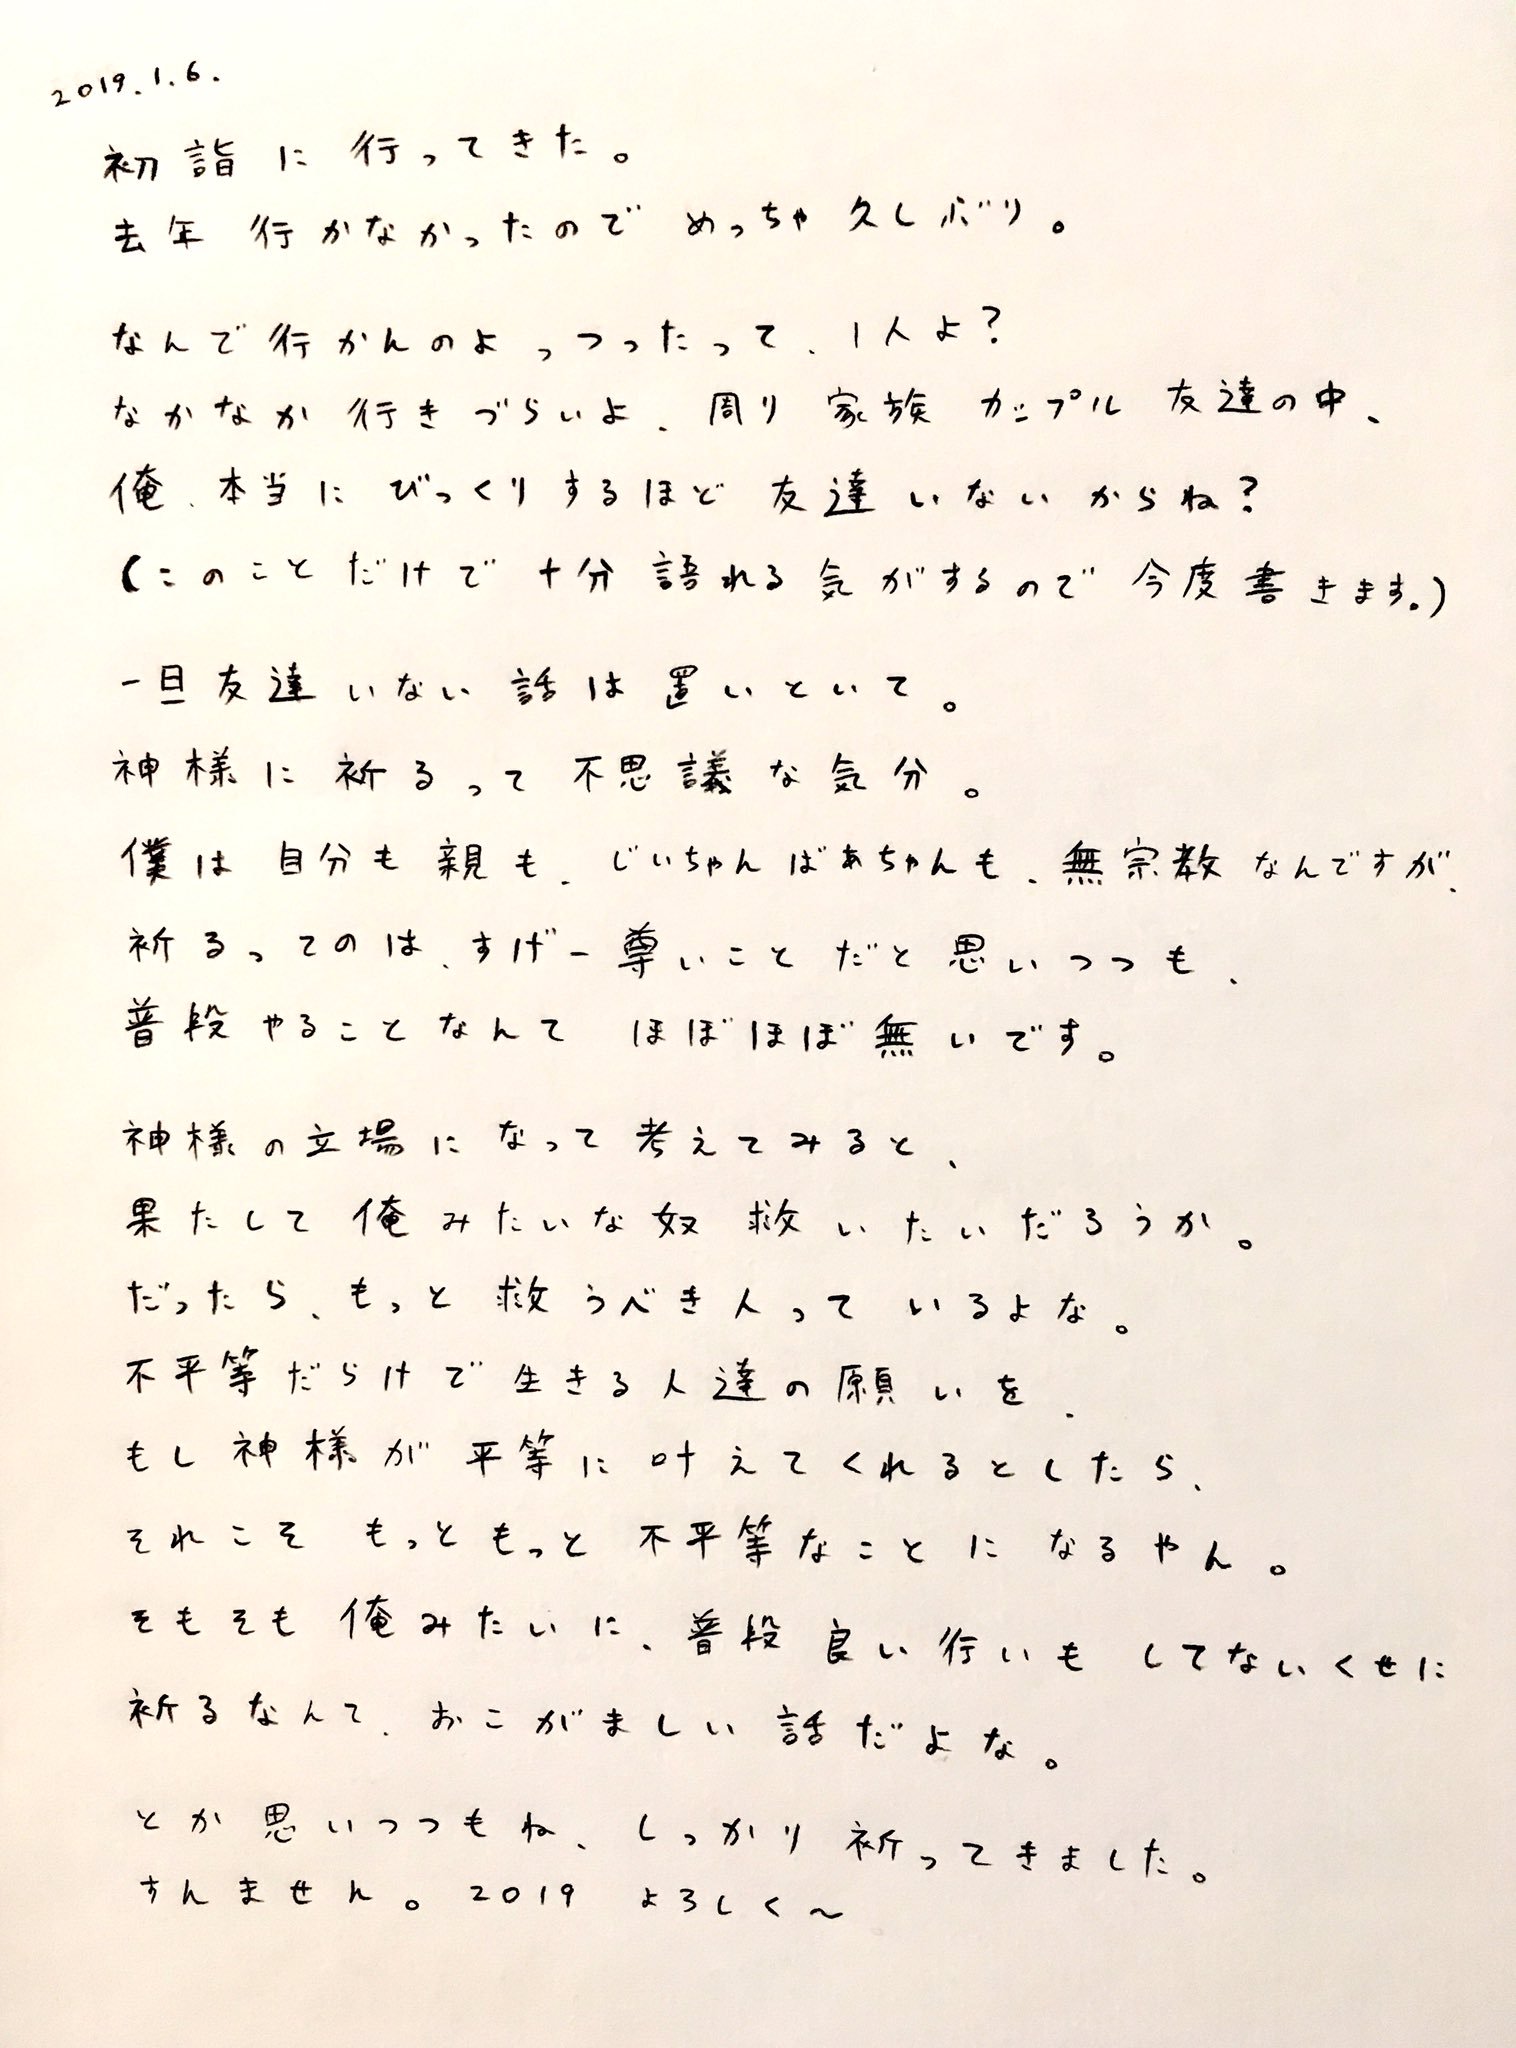 2019.1.6.
初詣に行ってきた。
去年行かなかったのでめっちゃ久しぶり。
なんで行かんのよっつったって、1人よ？
なかなか行きづらいよ、周り家族カップル友達の中、
俺、本当にびっくりするほど友達いないからね？
(このことだけで十分語れる気がするので今度書きます。)
一旦友達いない話は置いといて。
神様に祈るって不思議な気分。
僕は自分も親も、じいちゃんばあちゃんも、無宗教なんですが、
祈るってのは、すげー尊いことだと思いつつも、
普段やることなんてほぼほぼ無いです。
神様の立場になって考えてみると、
果たして俺みたいな奴救いたいだろうか。
だったら、もっと救うべき人っているよな。
不平等だらけで生きる人達の願いを、
もし神様が平等に叶えてくれるとしたら、
それこそもっともっと不平等なことになるやん。
そもそも俺みたいに、普段良い行いもしてないくせに
祈るなんて、おこがましい話だよな。
とか思いつつもね、しっかり祈ってきました。
すんません。2019 よろしく〜